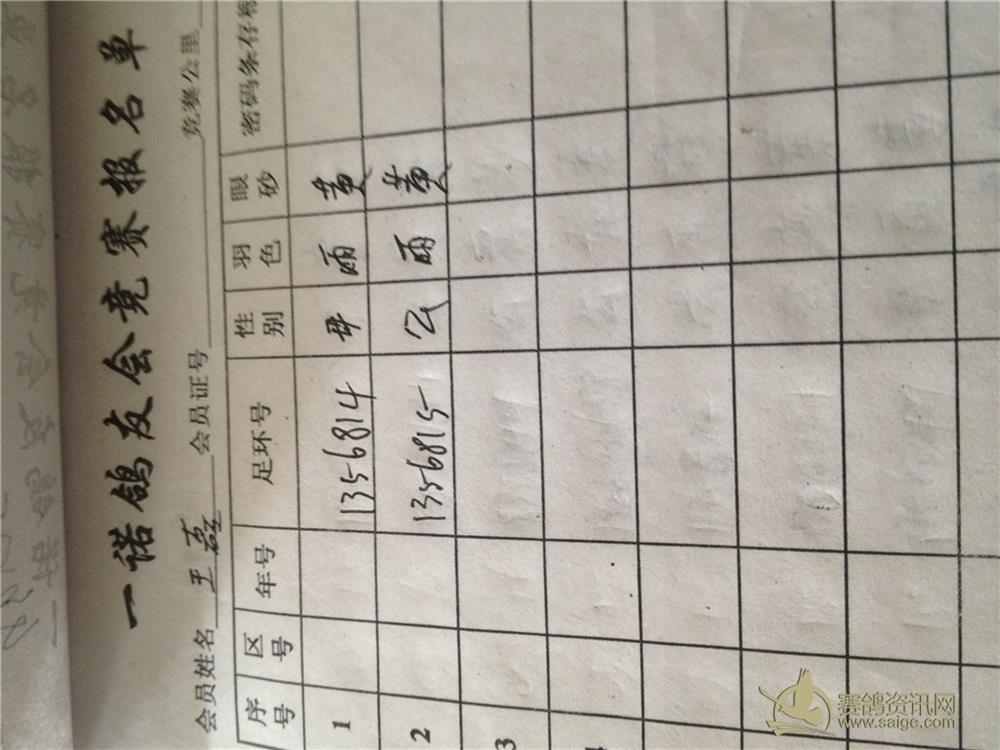 一诺鸽友会竞赛报名单
会员姓名 王磊 会员证号 竞赛公里
序号 区号 年号 足环号 性别 羽色 眼砂 密码条存
1 1356814 母 雨 黄
2 1356815 公 雨 黄
3
赛鸽资讯网
www.saige.com